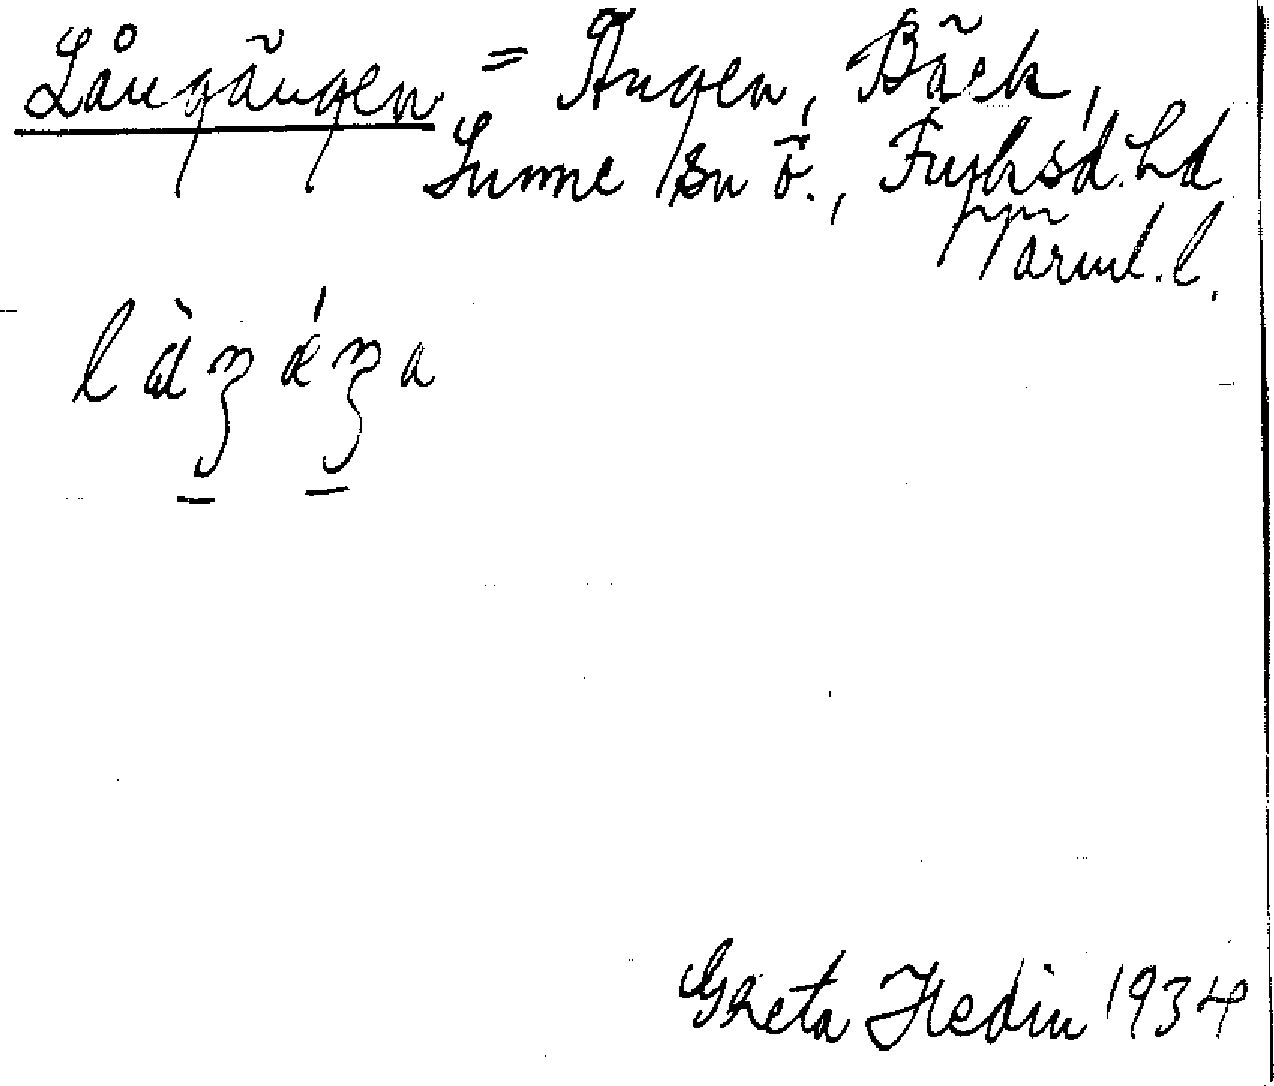 Långängen = Ängen, Bäck,
Sunne sn ö., Fryksd. hd
Värml. l.
Greta Hedin 1934